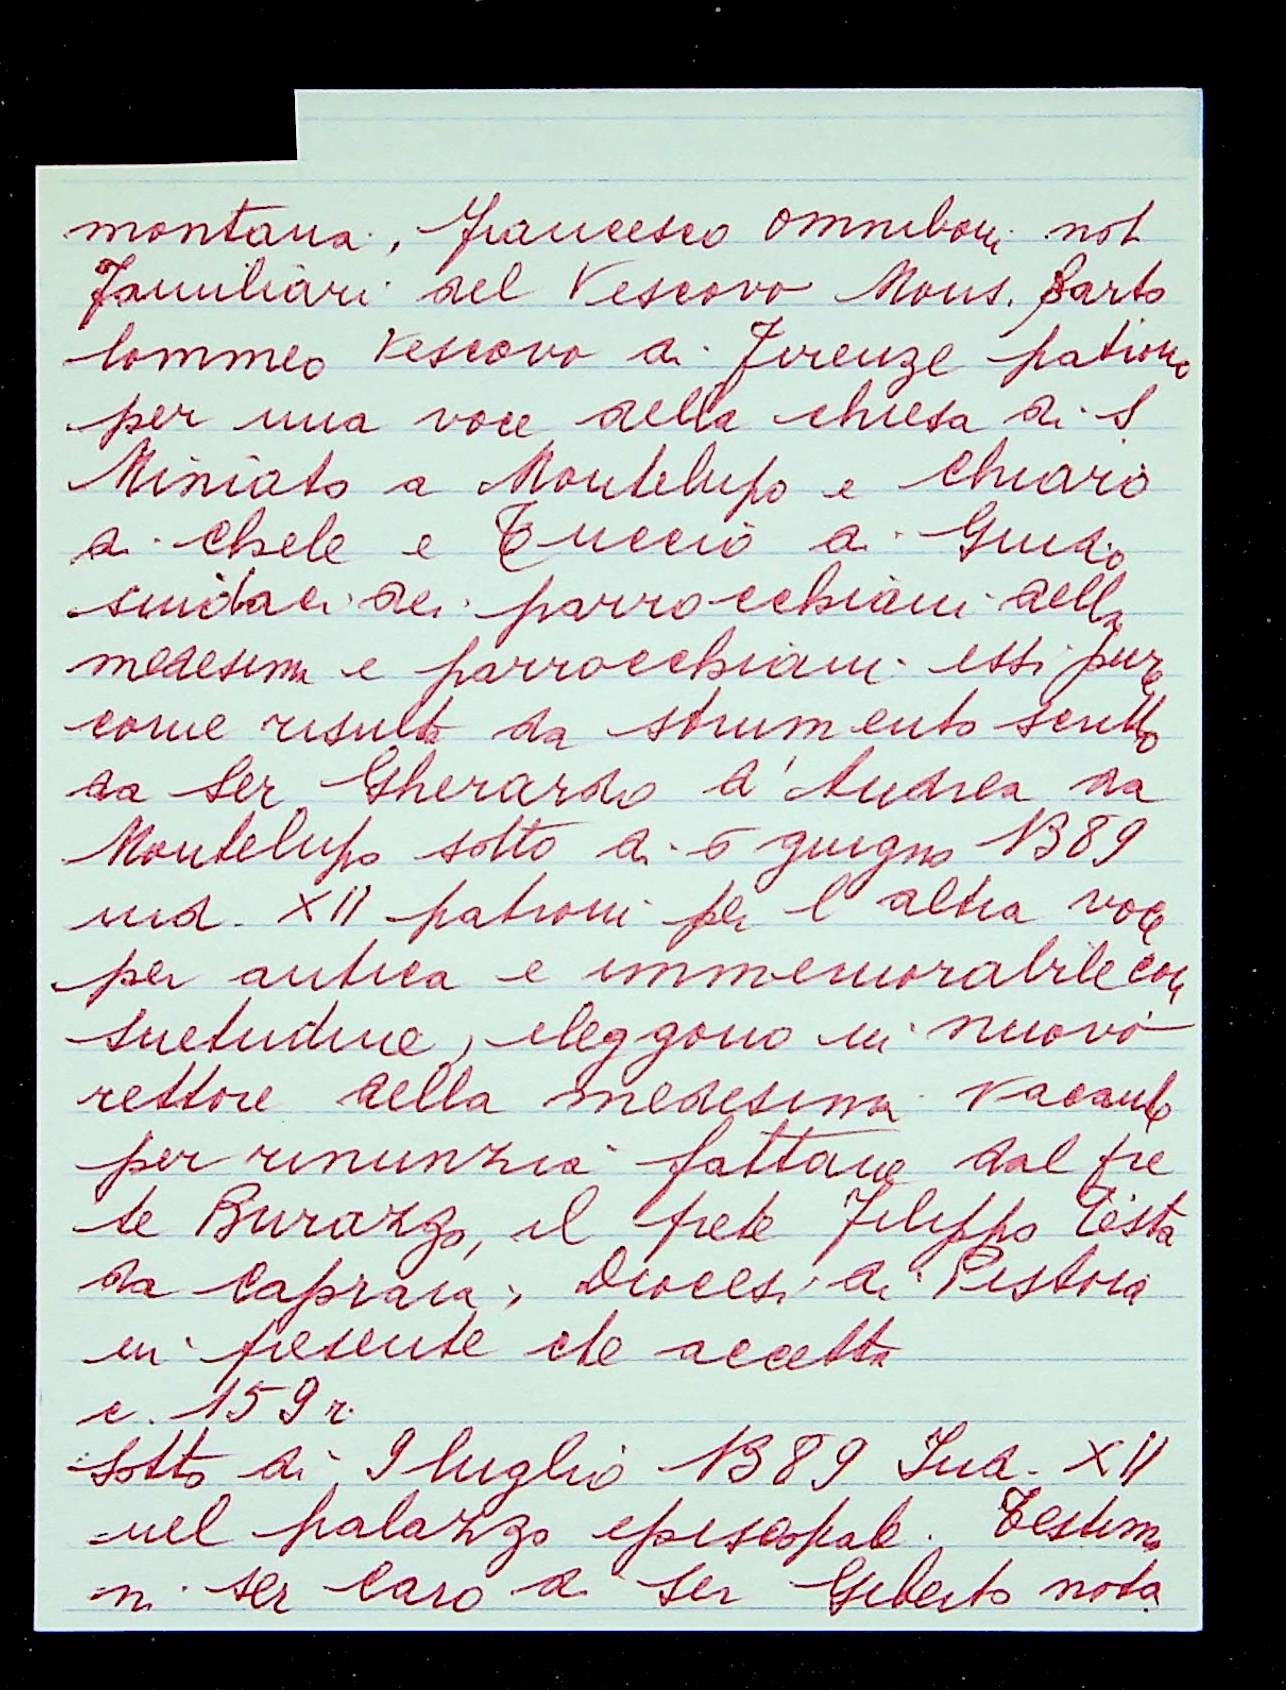 montana, Francesco Omniboni not
Familiari del Vescovo Mons. Barto
lommeo Vescovo di Firenze patrono
per una voce della chiesa di S.
Miniato a Montelupo e Chiaro
di Chele e Tuccio di Guido
sindaci dei parrocchiani della
medesima e parrocchiani essi pure
come risulta da strumento scritto
da Ser Gherardo d'Andrea da
Montelupo sotto di 6 giugno 1389
ind. XII patroni per l'altra voce
per antica e immemorabile con
suetudine, eleggono in nuovo
rettore della medesima vacante
per rinunzia fattane dal pre
te Burazzo, il prete Filippo Testa
da Capraia, Diocesi di Pistoia
ivi presente che accetta
c. 159 r.
sotto di 9 luglio 1389 Ind. XII
nel palazzo episcopale. Testimo
ni ser Caro di Ser Giberto nota